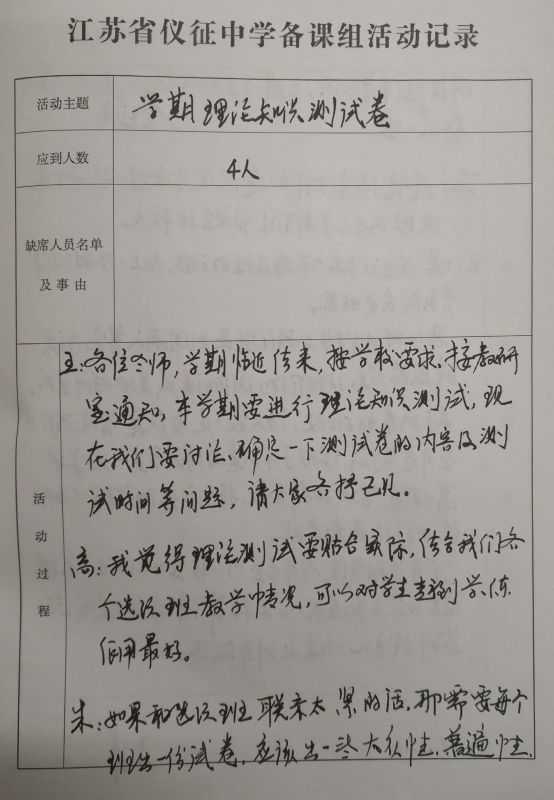 江苏省仪征中学备课组活动记录
活动主题
学期理论知识测试卷
应到人数
4人
缺席人员名单
及事由
活动过程
王:各位老师,学期临近结束,按学校要求,接教研
室通知,本学期要进行理论知识测试,现
在我们要讨论、确定一下测试卷的内容及测
试时间等问题,请大家各抒己见。
高:我觉得理论测试要贴合实际,结合我们各
个选项班教学情况,可以对学生起到学以
最好。
朱:如果和选项班联系太紧的话,那需要每个
班出一份试卷,应该出一些大众性、普遍性